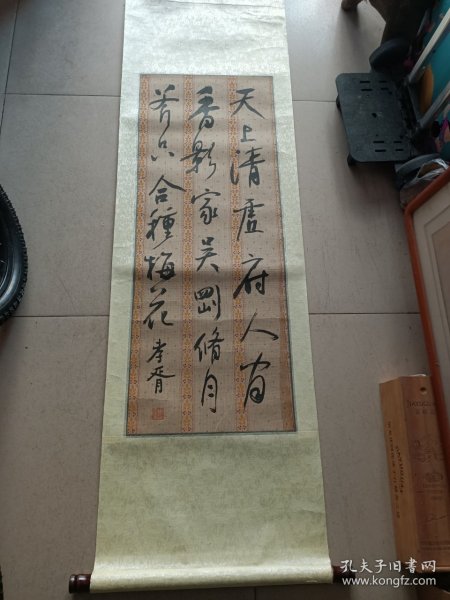 天上清虛府人間
香影家吴剛脩月
斧只合種梅花 孝胥
孔夫子旧书网
www.kongfz.com